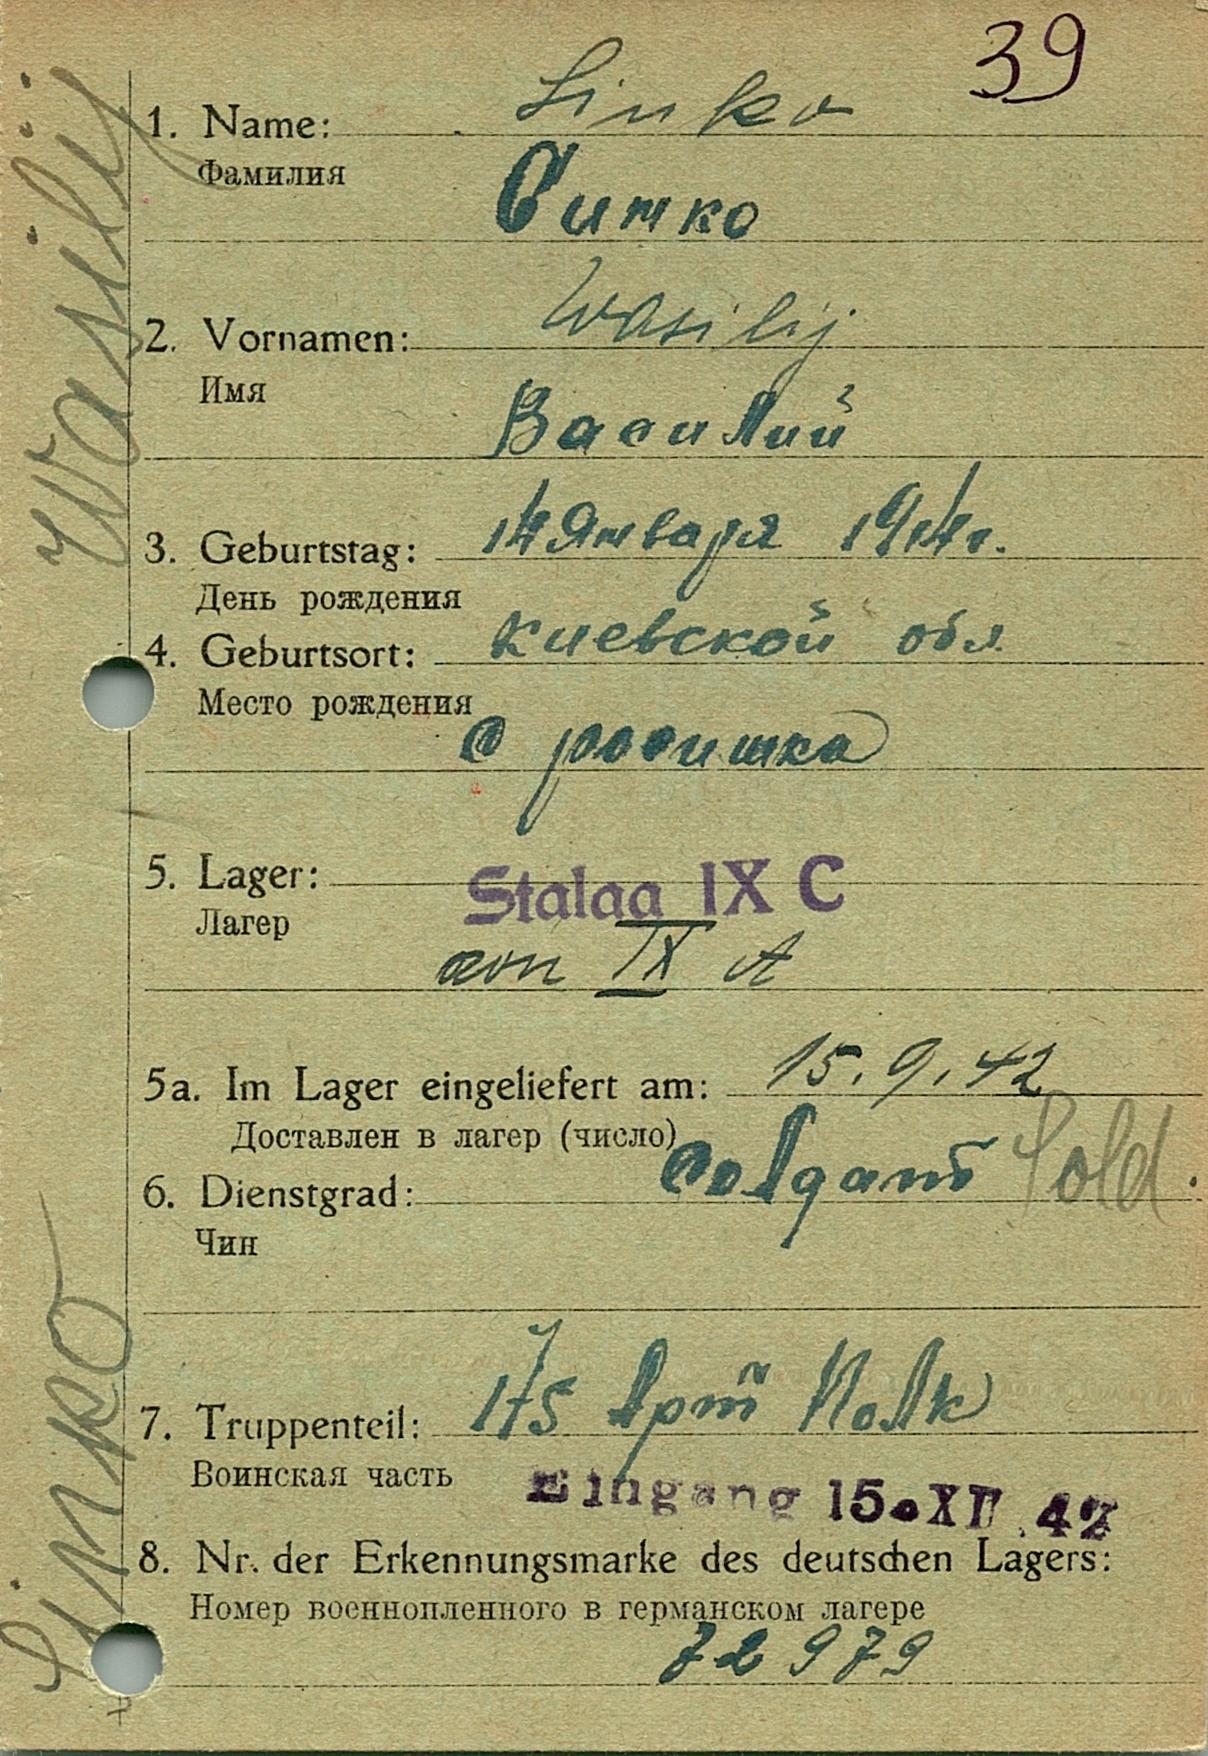 39
1. Name: Sinko
Фамилия
Синко
2. Vornamen: Wasilij
Имя
Василий
3. Geburtstag: 14 Января 1914 г.
День рождения
4. Geburtsort: Киевской обл.
Место рождения
с росишка
5. Lager: Stalag IX C
Лагер
von IX A
5a. Im Lager eingeliefert am: 15.9.42
Доставлен в лагер (число)
6. Dienstgrad: Солдат Sold.
Чин
7. Truppenteil: Арт Полк
Воинская часть
Eingang 15. 42
8. Nr. der Erkennungsmarke des deutschen Lagers:
Номер военнопленного в германском лагере
72979
Sinko Wasilij